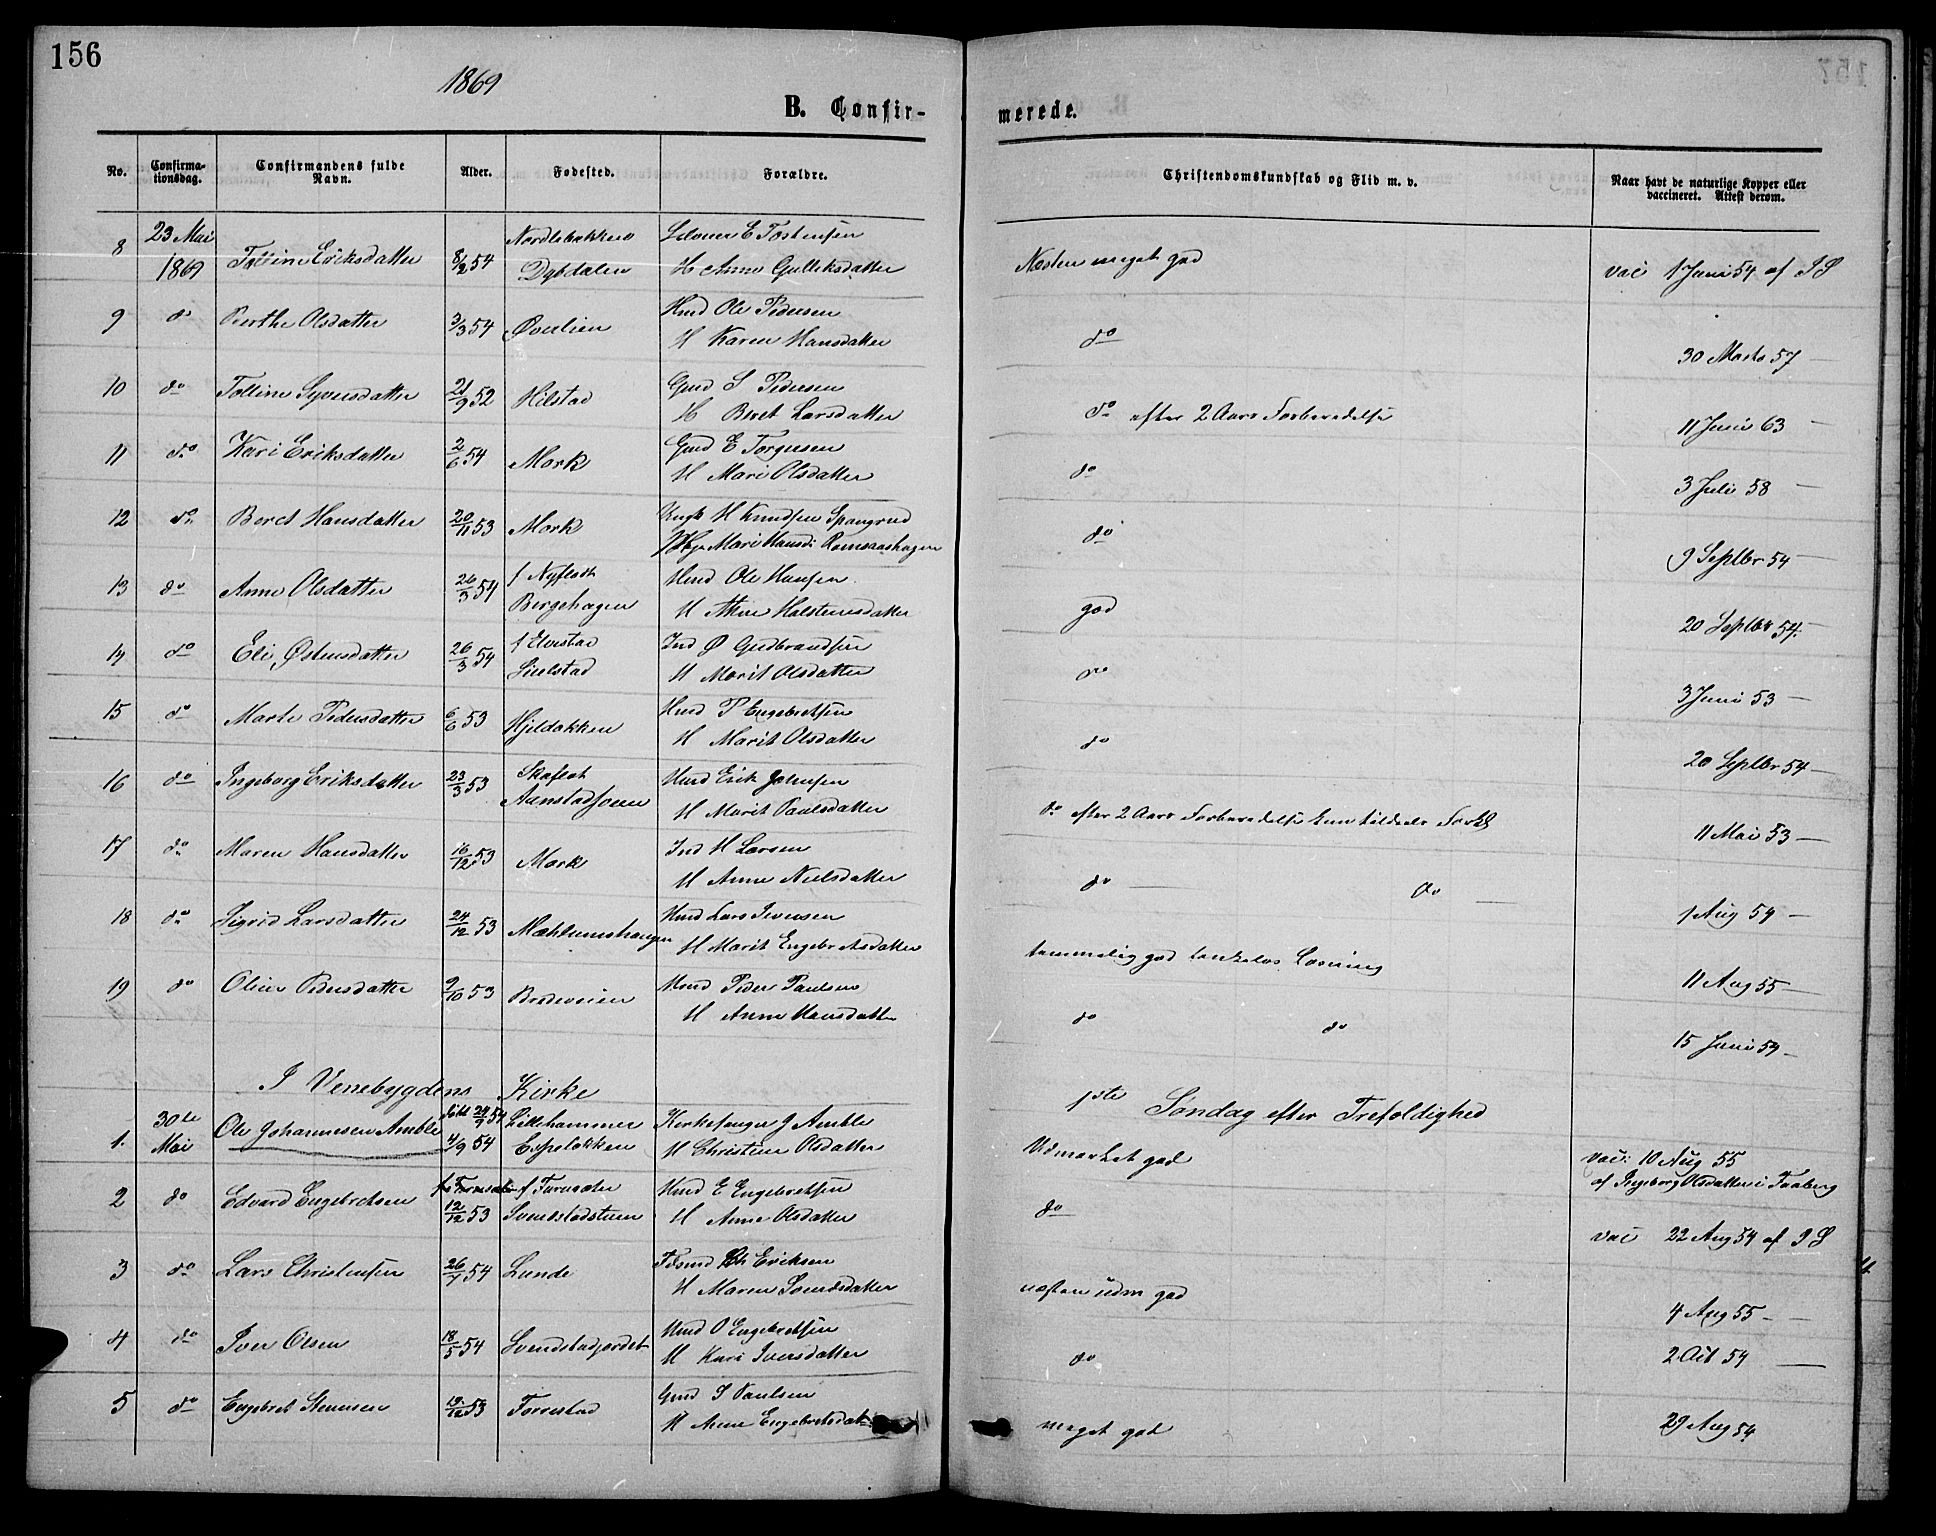 156
1869
B. Confirmerede.
No. Confirmationsdag. Confirmandens fulde Navn. Alder. Fødested. Forældre. Christendomskundskab og Flid m. v. Naar havt de naturlige Kopper eller vaccineret. Attest derom.
8 23 Mai 1869 Eriksdatter 8/2 54 Dybdalen E Tostensen
H Anne Gulliksdatter Næsten meget god vac 1 Juni 54 af I S
9 do Berthe Olsdatter 3/3 54 Øverlien Hmd Ole Pedersen
H Karen Hansdatter do 30 Marts 57 —
10 do Tolline Syversdatter 21/9 52 Hilstad Gmd S Pedersen
H Beret Larsdatter do efter 2 Aars Forberedelse 11 Juni 63 —
11 do Kari Eriksdatter 2/6 54 Mork Gmd E Torgersen
H Mari Olsdatter do 3 Juli 58 —
12 do Beret Hansdatter 20/11 53 Mork Ungk H Knudsen Spangrud
Pige Mari Hansd: Romsaashagen do 9 Septbr 54 —
13 do Anne Olsdatter 26/3 54 f Nyflodt
Bergehagen Hmd Ole Hansen
H Halstensdatter god 20 Septbr 54 —
14 do Eli Østensdatter 26/3 54 f Elvestad
Lielstad Ind Ø Gudbrandsen
H Marit Olsdatter do 3 Juni 53 —
15 do Marte Pedersdatter 6/6 53 Hjeldakken Hmd P Engebretsen
H Marit Olsdatter do 20 Septbr 54 —
16 do Ingeborg Eriksdatter 23/3 53 Skaflot
Aanstadsveen Hmd Erik Johnsen
H Marit Paulsdatter do efter 2 Aars Forberedelse 11 Mai 53 —
17 do Maren Hansdatter 16/12 53 Mork Ind H Larsen
H Anne Nielsdatter do — do — 1 Aug 54 —
18 do Sigrid Larsdatter 24/12 53 Mæhlumshaugen Hmd Lars Iversen
H Marit Engebretsdatter temmelig god tankeløs Læsning 11 Aug 55 —
19 do Oline Pedersdatter 9/10 53 Brødeveien Hmd Peder Paulsen
H Anne Hansdatter do do 15 Juni 54 —
I Venebygdens Kirke 1ste Søndag efter Trefoldighed
1. 30te Mai Ole Johannesen Amble født 24/7 54
4/9 54 Lillehammer
Espelokken Kirkesanger J Amble
H Christine Olsdatter Udmærket god vac: 10 Aug 55
af Ingeborg Olsdatter i Faaberg
2 do Edvard Engebretsen 12/12 53 f Furusæter
Svendstadstuen Hmd E Engebretsen
H Anne Olsdatter do vac 22 Aug 54 af I S
3 do Lars Christensen 26/1 54 Lunde Eriksen
H Maren Svendsdatter næsten udm god 4 Aug 55 —
4 do Iver Olsen 18/5 54 Svendstadjordet Hmd O Engebretsen
H Kari Iversdatter do 2 Oct 54 —
5 do Engebret Steensen 19/12 53 Forrestad Gmd S Paulsen
H Anne Engebretsdat meget god 29 Aug 54